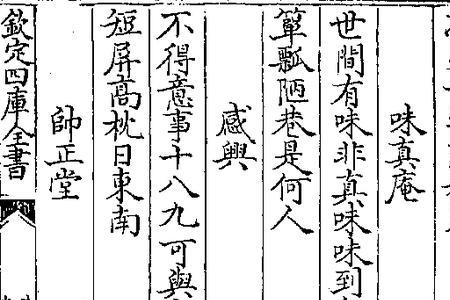 味真庵
世間有味非真味味到
簞瓢陋巷是何人
感興
不得意事十八九可與
短屏高枕日東南
帥正堂
欽定四庫全書